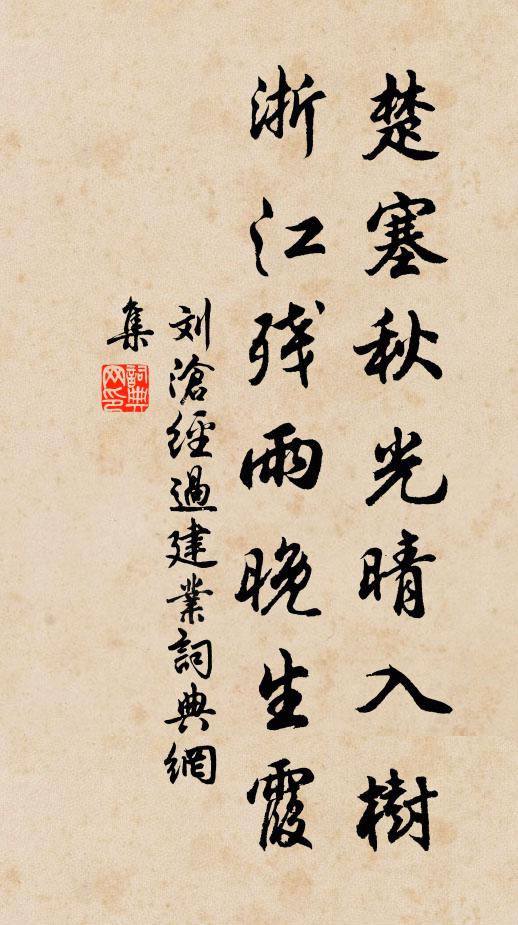 楚塞秋光晴入樹
浙江残雨晚生霞
刘滄經過建業詞典網
集
詞典網印